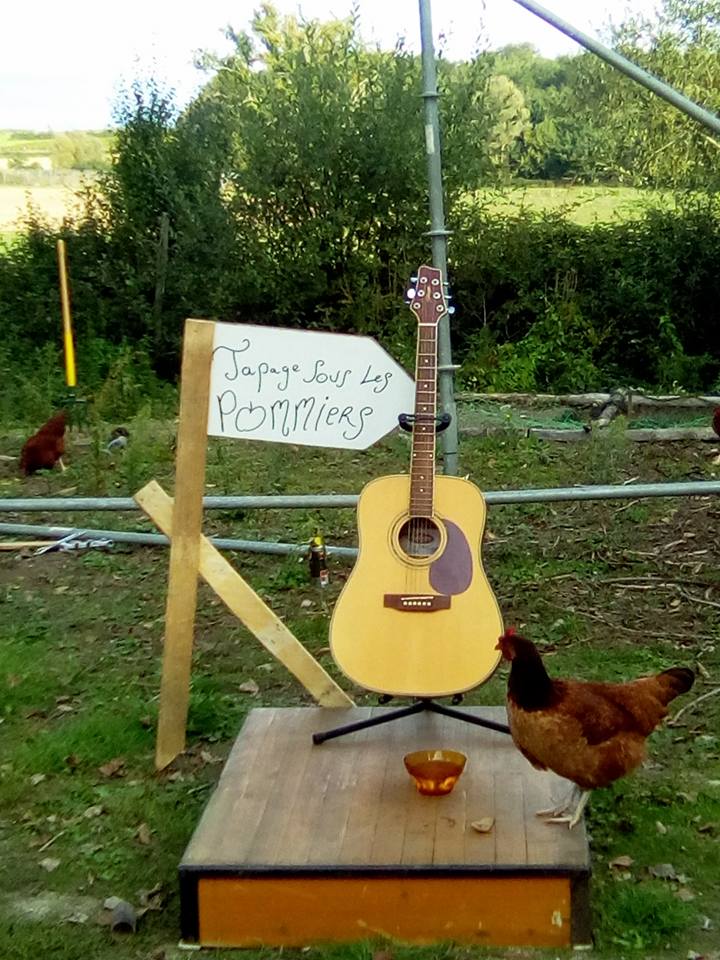 Tapage Sous Les
POMMIERS